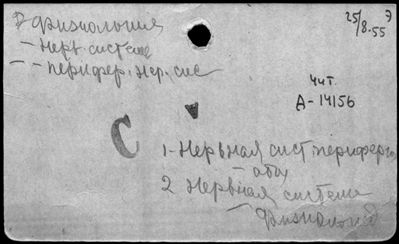 Физиология
25/8.55 Э
- Нерв. система
- - перифер. нер. сис
чит.
А-14156
С
1 - Нервная сист перифер
2 Нервная система
- Физиология